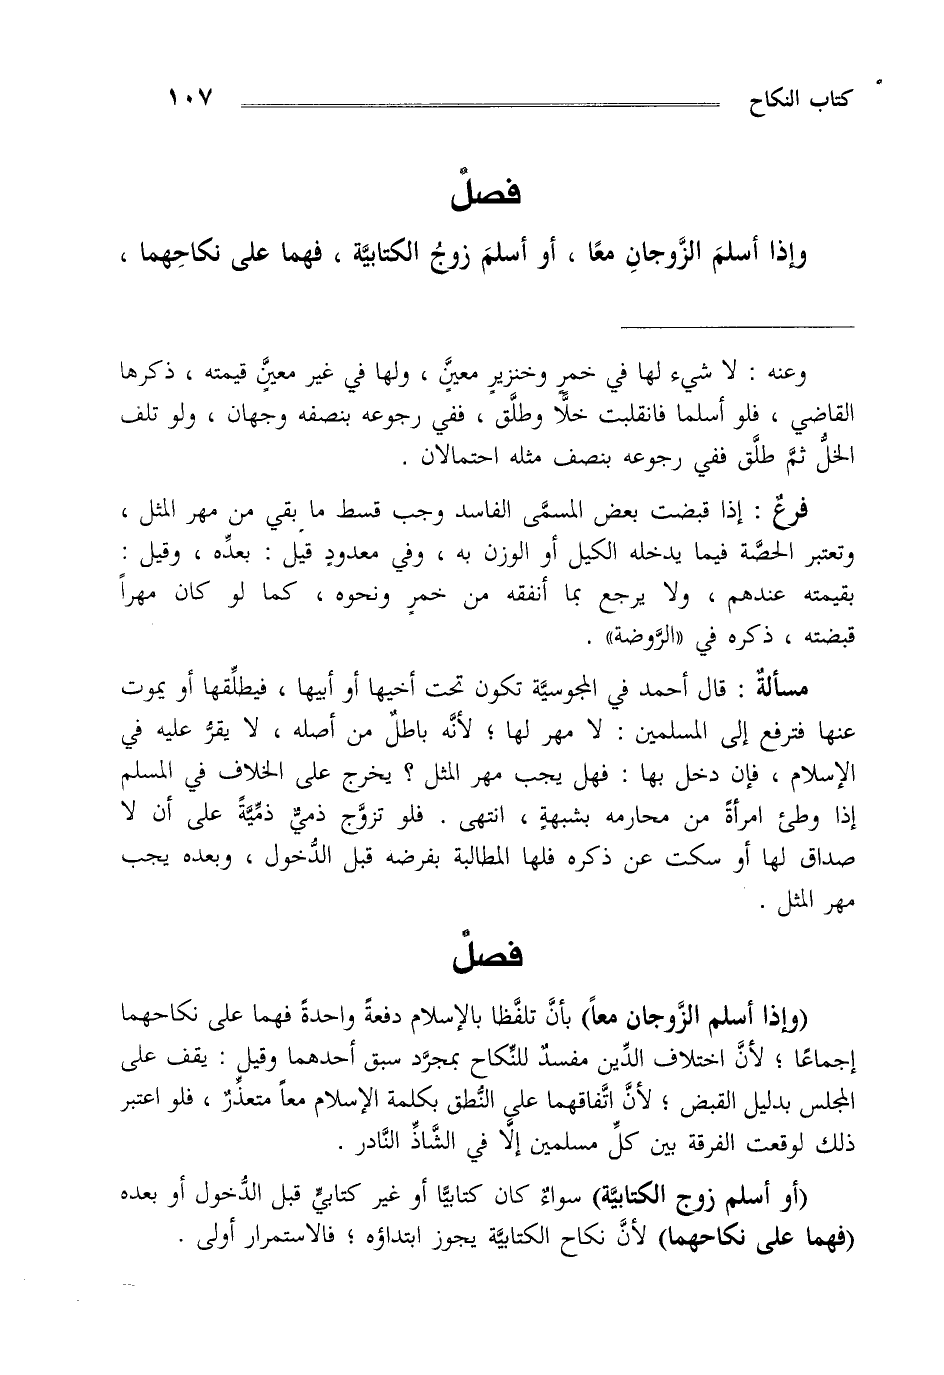 كتاب النكاح ١٠٧
فصلٌ
وإذا أسلمَ الزَّوجانِ معًا ، أو أسلمَ زوجُ الكتابيَّة ، فهما على نكاحِهما ،
وعنه : لا شيء لها في خمرٍ وخنزيرٍ معينَّ ، ولها في غير معينَّ قيمته ، ذكرها
القاضي ، فلو أسلما فانقلبت خلًّا وطلَّق ، ففي رجوعه بنصفه وجهان ، ولو تلف
الخلُّ ثمَّ طلَّق ففي رجوعه بنصف مثله احتمالان .
فرعٌ : إذا قبضت بعض المسمَّى الفاسد وجب قسط ما بقي من مهر المثل ،
وتعتبر الحصَّة فيما يدخله الكيل أو الوزن به ، وفي معدودٍ قيل : بعدِّه ، وقيل :
بقيمته عندهم ، ولا يرجع بما أنفقه من خمرٍ ونحوه ، كما لو كان مهراً
قبضته ، ذكره في «الرَّوضة» .
مسألةٌ : قال أحمد في المجوسيَّة تكون تحت أخيها أو أبيها ، فيطلِّقها أو يموت
عنها فترفع إلى المسلمين : لا مهر لها ؛ لأنَّه باطلٌ من أصله ، لا يقرُّ عليه في
الإسلام ، فإن دخل بها : فهل يجب مهر المثل ؟ يخرج على الخلاف في المسلم
إذا وطئ امرأةً من محارمه بشبهةٍ ، انتهى . فلو تزوَّج ذميٌّ ذمِّيَّةً على أن لا
صداق لها أو سكت عن ذكره فلها المطالبة بفرضه قبل الدُّخول ، وبعده يجب
مهر المثل .
فصلٌ
(وإذا أسلم الزَّوجان معاً) بأنَّ تلفَّظا بالإسلام دفعةً واحدةً فهما على نكاحهما
إجماعًا ؛ لأنَّ اختلاف الدِّين مفسدٌ للنِّكاح بمجرَّد سبق أحدهما وقيل : يقف على
المجلس بدليل القبض ؛ لأنَّ اتَّفاقهما على النُّطق بكلمة الإسلام معاً متعذِّرٌ ، فلو اعتبر
ذلك لوقعت الفرقة بين كلِّ مسلمين إلَّا في الشَّاذِّ النَّادر .
(أو أسلم زوج الكتابيَّة) سواءٌ كان كتابيًّا أو غير كتابيٍّ قبل الدُّخول أو بعده
(فهما على نكاحهما) لأنَّ نكاح الكتابيَّة يجوز ابتداؤه ؛ فالاستمرار أولى .